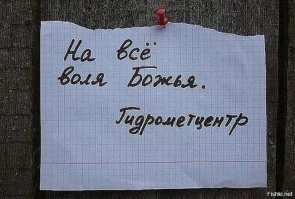 На всё
воля Божья.
Гидрометцентр
Fishki.net